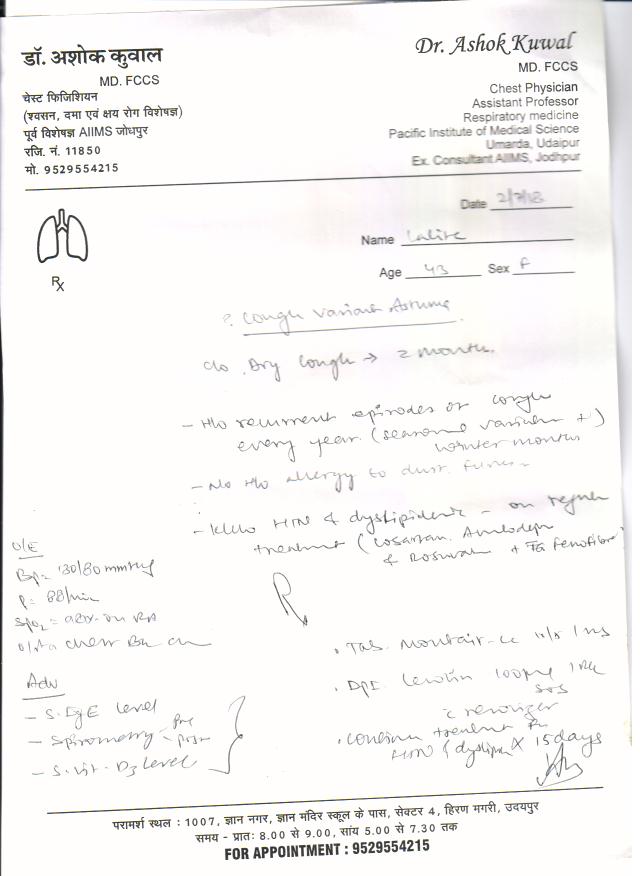 डॉ. अशोक कुवाल
MD. FCCS
चेस्ट फिजिशियन
(श्वसन, दमा एवं क्षय रोग विशेषज्ञ)
पूर्व विशेषज्ञ AIIMS जोधपुर
रजि. नं. 11850
मो. 9529554215
Dr. Ashok Kuwal
MD. FCCS
Chest Physician
Assistant Professor
Respiratory medicine
Pacific Institute of Medical Science
Umarda, Udaipur
Ex. Consultant AIIMS, Jodhpur
Date 2/7/18
Name
Age 43 Sex F
Rx
? Cough Variant Asthma
c/o Dry Cough → 2 months.
- H/o recurrent episodes of cough
every year. (seasonal variation +)
winter months
- No H/o allergy to dust, fumes
- K/c/o HTN & dyslipidemia - on regular
treatment (Losartan, Amlodepin
& Rosuvas + Fenofibrate
O/E
BP = 130/80 mmHg
P = 88/min
SpO2 = on RA
chest
Adv
- S. IgE Level
- Spirometry - pre
- post
- S. Vit. D3 Level
R
. Tab. Montair-LC
. DPI Levolin 100mcg
SOS
c revolizer
. Continue treatment for
HTN & dyslipi X 15 days
परामर्श स्थल : 1007, ज्ञान नगर, ज्ञान मंदिर स्कूल के पास, सेक्टर 4, हिरण मगरी, उदयपुर
समय - प्रातः 8.00 से 9.00, सांय 5.00 से 7.30 तक
FOR APPOINTMENT : 9529554215